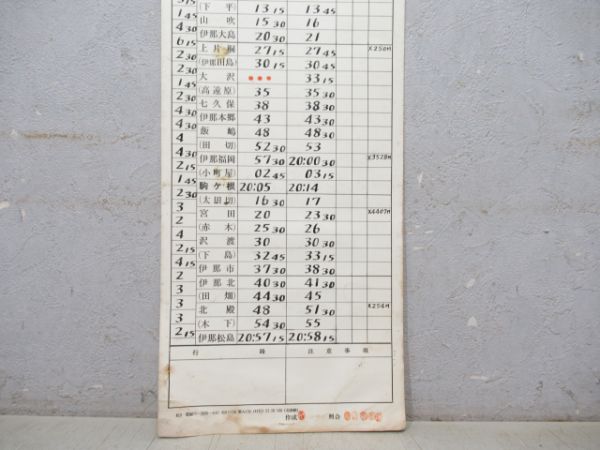 (下平) 13 15 13 45
1 45 山吹 15 30 16
4 30 伊那大島 20 30 21
6 15 上片桐 27 15 27 45 X250M
2 30 (伊那田島) 30 15 30 45
2 30 大沢 ●●● 33 15
1 45 (高遠原) 35 35 30
2 30 七久保 38 38 30
4 30 伊那本郷 43 43 30
4 30 飯嶋 48 48 30
4 (田切) 52 30 53
4 30 伊那福岡 57 30 20:00 30 X352M
2 15 (小町屋) 02 45 03 15
1 45 駒ケ根 20:05 20:14
2 30 (太田切) 16 30 17
3 宮田 20 23 30
2 (赤木) 25 30 26
4 沢渡 30 30 30
2 15 (下島) 32 45 33 15
4 15 伊那市 37 30 38 30
2 伊那北 40 30 41 30
3 (田畑) 44 30 45
3 北殿 48 51 30 X256M
3 (木下) 54 30 55
2 15 伊那松島 20:57 15 20:58 15
行 路 注意事項
作成 照合